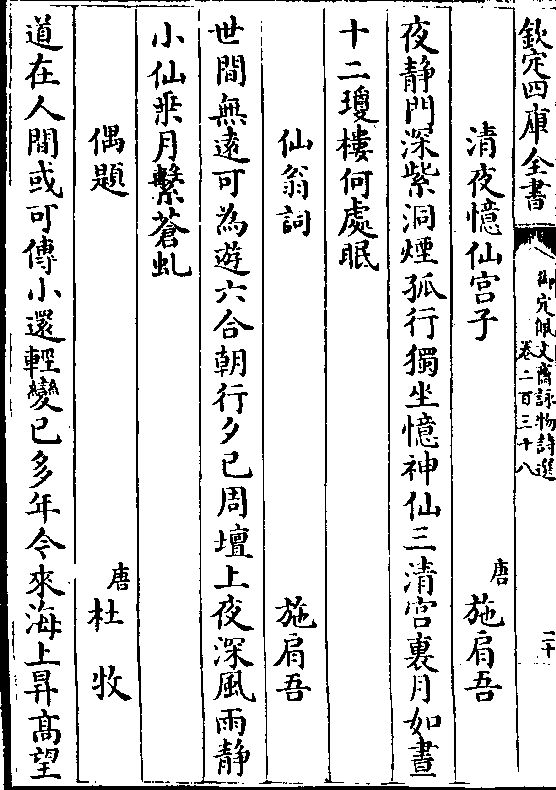 欽定四庫全書
御定佩文齋詠物詩選
卷二百三十八
二十
清夜憶仙宫子
唐
施肩吾
夜静門深紫洞煙孤行獨坐憶神仙三清宮裏月如晝
十二瓊樓何處眠
仙翁詞
施肩吾
世間無遠可為遊六合朝行夕已周壇上夜深風雨静
小仙乘月繫蒼虬
偶題
唐
杜牧
道在人間或可傳小還輕變已多年今來海上昇高望